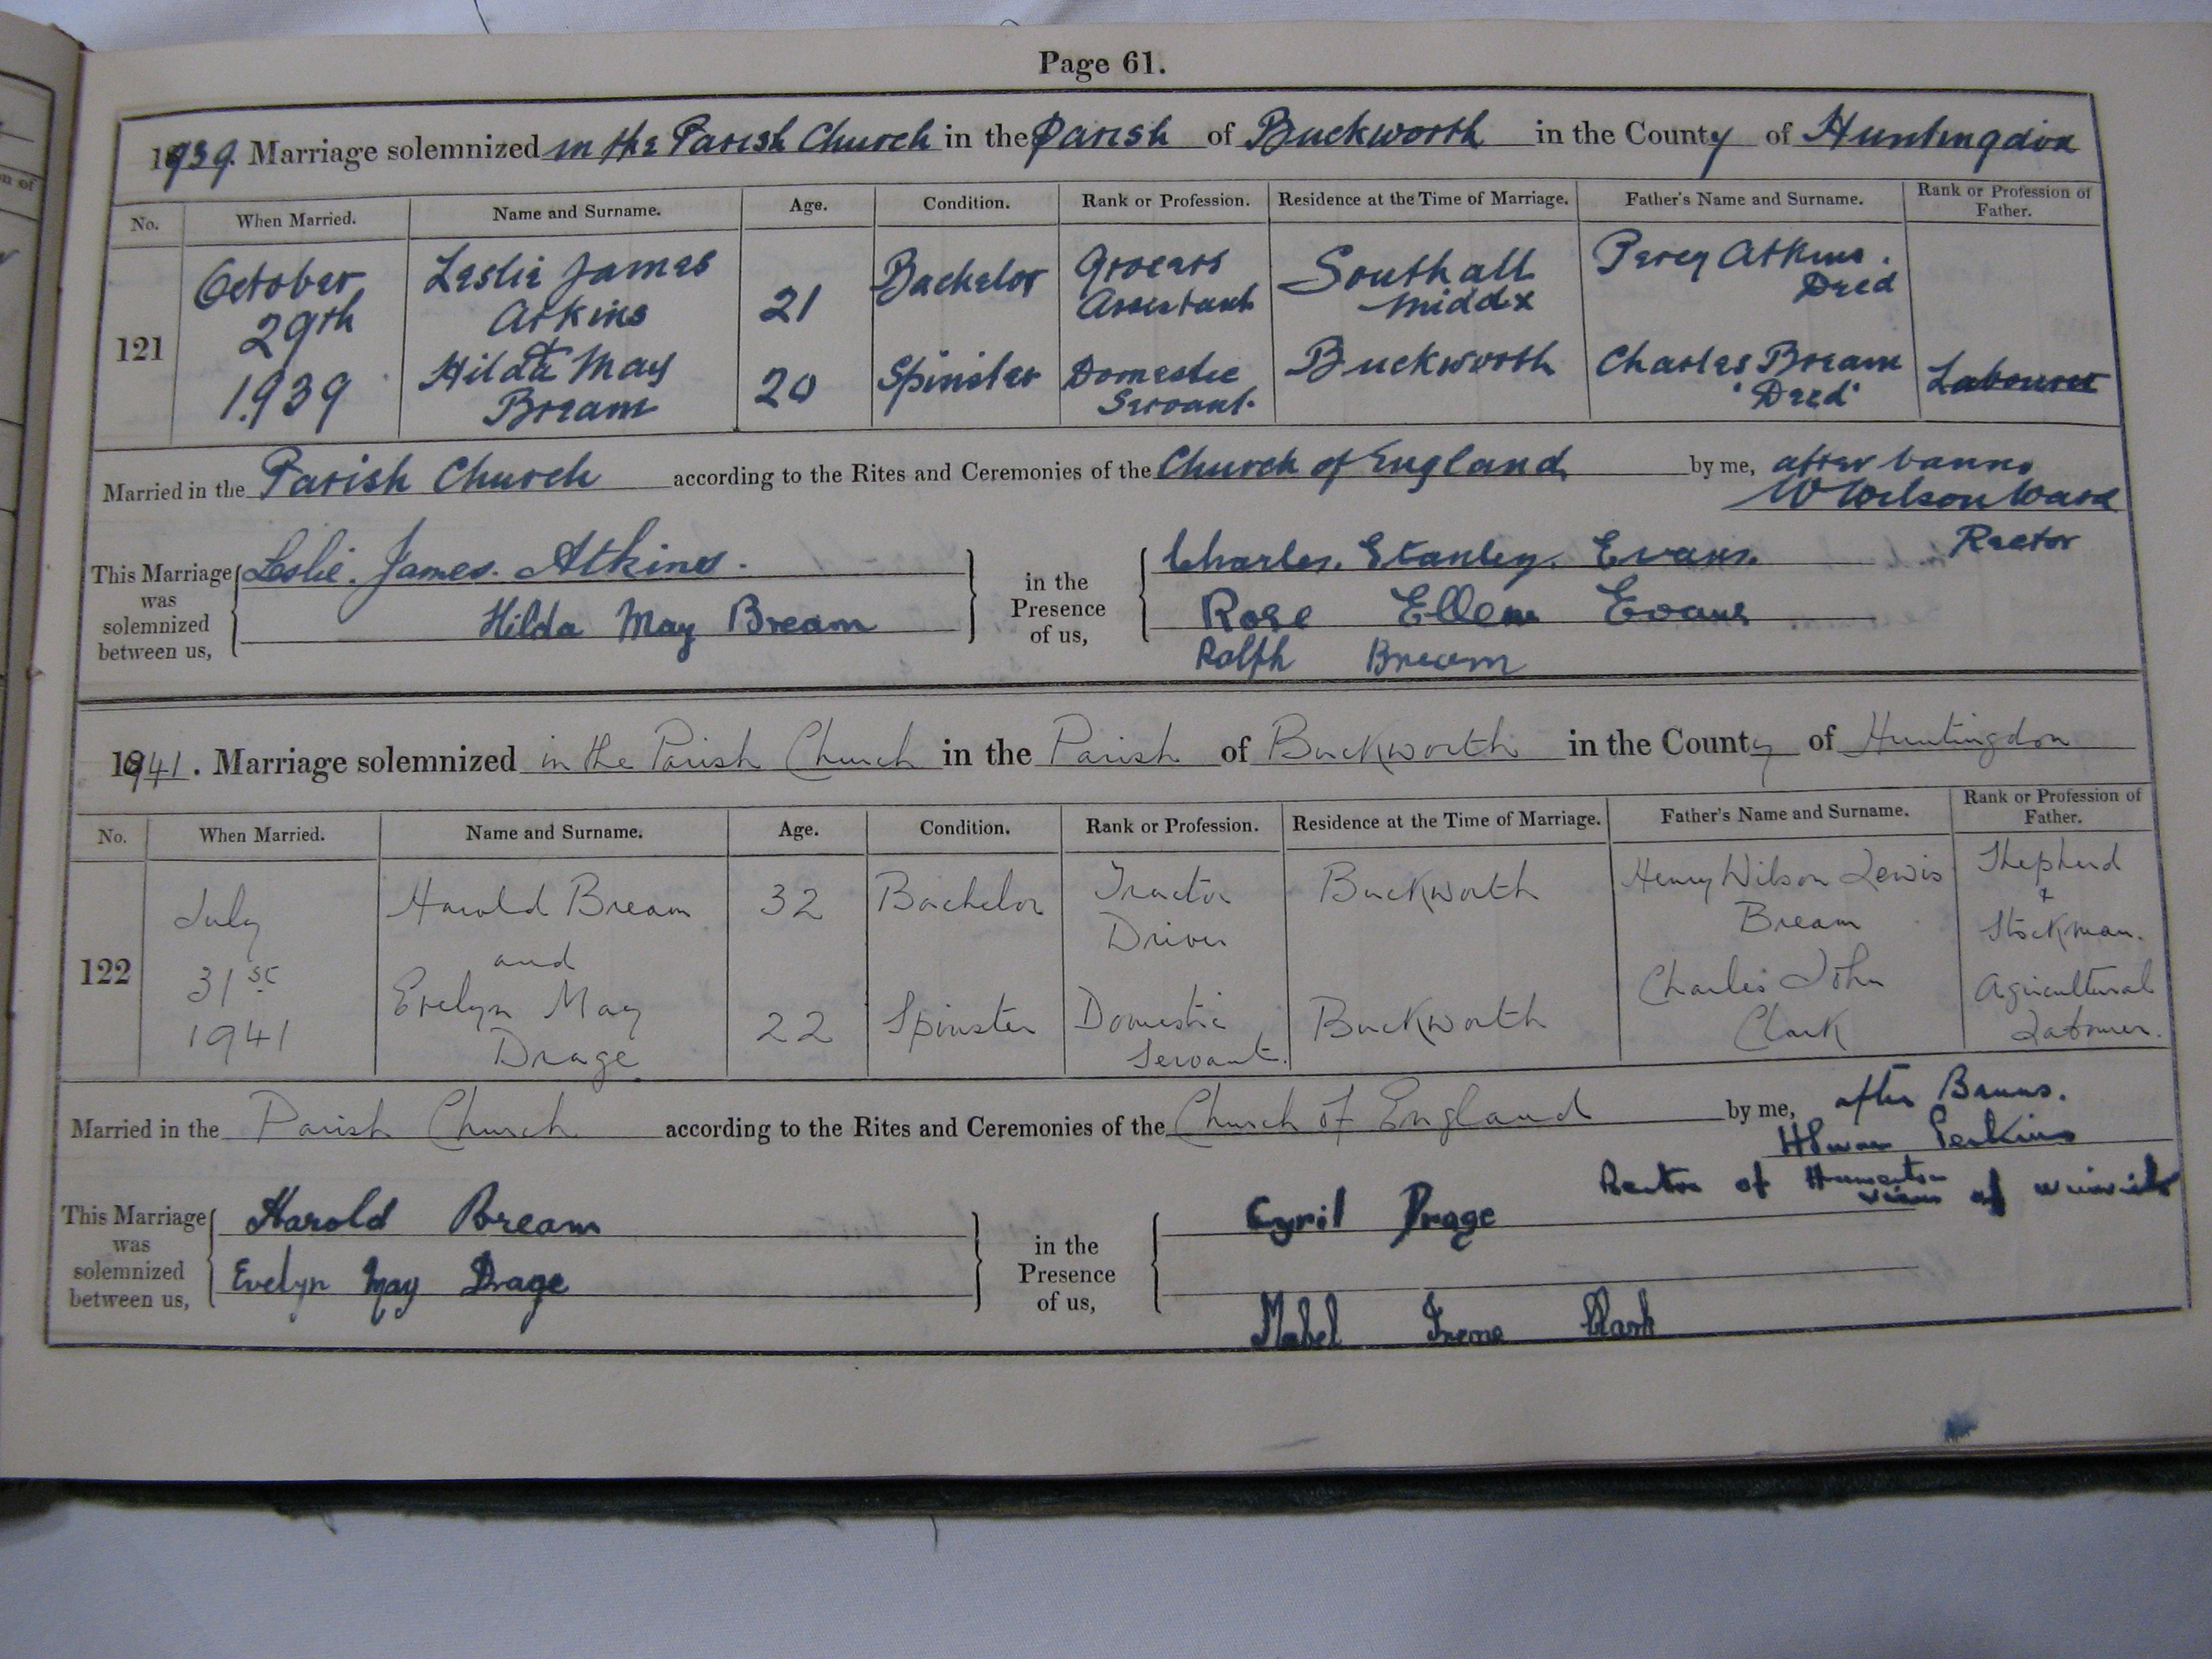 Page 61.
1939. Marriage solemnized in the Parish Church in the Parish of Buckworth in the County of Huntingdon
No. When Married. Name and Surname. Age. Condition. Rank or Profession. Residence at the Time of Marriage. Father's Name and Surname. Rank or Profession of Father.
121 October 29th 1939 Leslie James Atkins 21 Bachelor Grocers Assistant Southall Middx Percy Atkins. Dced
Hilda May Bream 20 Spinster Domestic Servant. Buckworth Charles Bream 'Dced' Labourer
Married in the Parish Church according to the Rites and Ceremonies of the Church of England by me, after banns
W Wilson Ward
Rector
This Marriage was solemnized between us, Leslie. James. Atkins. in the Presence of us, Charles. Stanley. Evans.
Hilda May Bream Rose Ellen Evans
Ralph Bream
1941. Marriage solemnized in the Parish Church in the Parish of Buckworth in the County of Huntingdon
No. When Married. Name and Surname. Age. Condition. Rank or Profession. Residence at the Time of Marriage. Father's Name and Surname. Rank or Profession of Father.
122 July 31st 1941 Harold Bream 32 Bachelor Tractor Driver Buckworth Henry Wilson Lewis Bream Shepherd & Stockman.
and
Evelyn May Drage 22 Spinster Domestic Servant. Buckworth Charles John Clark Agricultural Labourer.
Married in the Parish Church according to the Rites and Ceremonies of the Church of England by me, after Banns.
Perkins
Rector of of
This Marriage was solemnized between us, Harold Bream in the Presence of us, Cyril Drage
Evelyn May Drage
Mabel Irene Clark